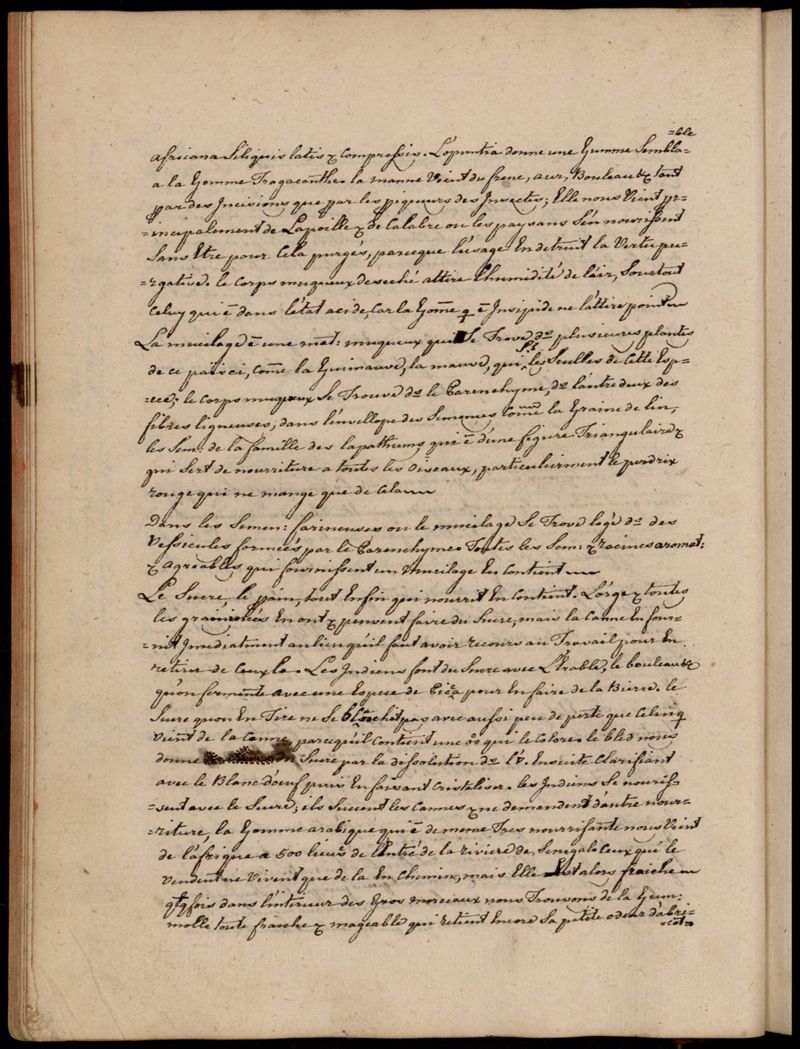 africana Siliquis latis & compressis. L'opuntia donne une Gumme Sembla=
=ble
a la Gomme Tragacanthe. la manne Vient du frene, acer, Bouleau &c tant
par des Incisions que par les piqueurs des Insectes, Elle nous Vient pr=
=incipalement de Lapoüille & de Calabre ou les paysans S'en nourissent
Sans Etre pour Cela purgés, parceque l'usage En detruit la Vertu pu=
=rgative. le Corps muqueux deseché attire l'humidité de l'air, Sourtout
Celuy qui ē dans l'état acide, Car la Gom̄e q ē Insipide ne l'attire point
La mucilage ē une mat: muqueux qui Se Trove ds plusieures plantes
de ce païs ci, com̄e la Guimauve, la mauve, qui St les Seulles de Cette Esp=
=ece; le Corps muqueux Se Trouve ds le Parenchyme, ds l'entre deux des
fibres ligneuses, dans l'envellope des Semences Com̄e la Graine de lin,
les Sem: de la famille des lapathums qui ē d'une figure Triangulaire &
qui Sert de nourriture a toutes les oiseaux, particulierment le perdrix
rouge qui ne mange que de Cela
Dans les Semen: farineuses ou le mucilage Se Trove logé ds des
Vessicules formées par le Parenchyme. Toutes les Sem: & racines aromat:
& agreables qui fournissent un mucilage En Contient
Le Sucre le pain, tout Enfin qui nourrit En Contient. L'orge & toutes
les graminées En ont & peuvent faire du Sucre, mais la Canne En four=
=nit Imediatment au lieu qu'il faut avoir recours au Travail pour En
retirer de Ceux la. Les Indiens font du Sucre avec L'Erable, le bouleau &c
qu'on fermente avec une Espece de pour En faire de la Biere. le
Sucre quon En Tire ne Se pas avec aussi peu de perte que Celui q
Vient de la Canne parcequ'il Contient une qui le Colore. le bled nous
donne du Sucre par la dissolution ds Ensuite Clarifiant
avec le Blanc d'œuf puis En faisant Cristaliser. les Indiens Se nouris=
=sent avec le Sucre; ils Sucent les Cannes & ne demendent d'autre nour=
=riture, la Gomme arabique qui ē de meme Tres nourrisante nous Vient
de l'afrique a 500 lieus de L'entré de la riviere de Senegale Ceux qui le
Vendent ne Vivent que de la En Chemin, mais Elle Est alors fraiche
qlqfois dans l'interieur des Gros morceaux nous Trouvons de la Gum:
molle toute fraiche & mageable qui retient Encore Sa petite odeur d'abri=
=cot